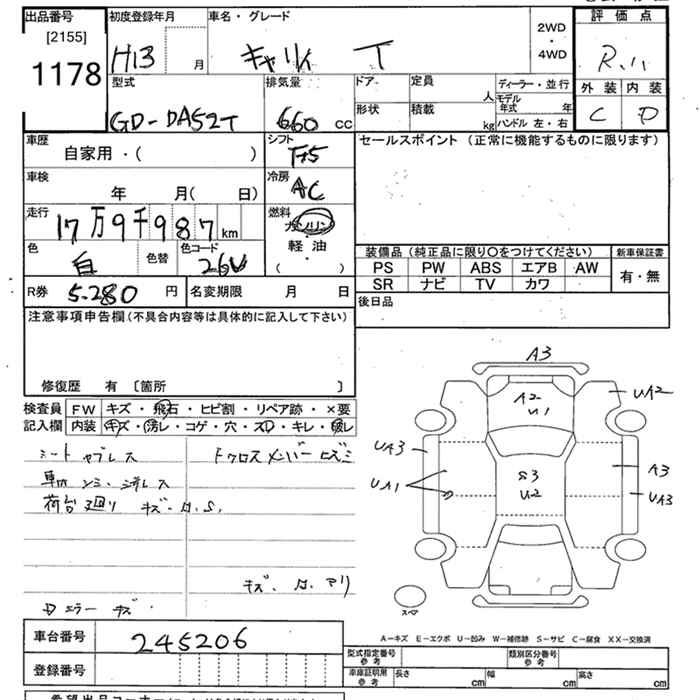 出品番号 初度登録年月 車名・グレード 2WD・4WD 評価点
[2155]
1178 H13 月 キャリイ T R.
型式 排気量 ドア 定員 人 ディーラー・並行 外装 内装
GD-DA52T 660 cc 形状 積載 kg モデル年式 年 ハンドル 左・右 C D
車歴 シフト セールスポイント (正常に機能するものに限ります)
自家用・( ) F5
車検 冷房
年 月( 日) AC
走行 燃料
17万9千987km ガソリン
色 色替 色コード 軽油
白 26U ( )
装備品 (純正品に限り〇をつけてください) 新車保証書
PS PW ABS エアB AW 有・無
SR ナビ TV カワ
R券 5.280 円 名変期限 月 日 後日品
注意事項申告欄(不具合内容等は具体的に記入して下さい)
修復歴 有 〔箇所 〕
検査員 FW キズ・飛石・ヒビ割・リペア跡・×要
記入欄 内装 キズ・汚レ・コゲ・穴・スレ・キレ・破レ
シート ヤブレス トクロスメンバー ヒズミ
車内
荷台廻り キズ.H.S.
キズ.H.アリ
ミラー キズ
A3
A2
U1
UA2
UA3
UA1
S3
U2
A3
UA3
スペア
A-キズ E-エクボ U-凹み W-補修跡 S-サビ C-腐食 XX-交換済
車台番号 245206
型式指定番号 参考 類別区分番号 参考
登録番号 車庫証明用 参考 長さ cm 幅 cm 高さ cm
希望出品コーナー